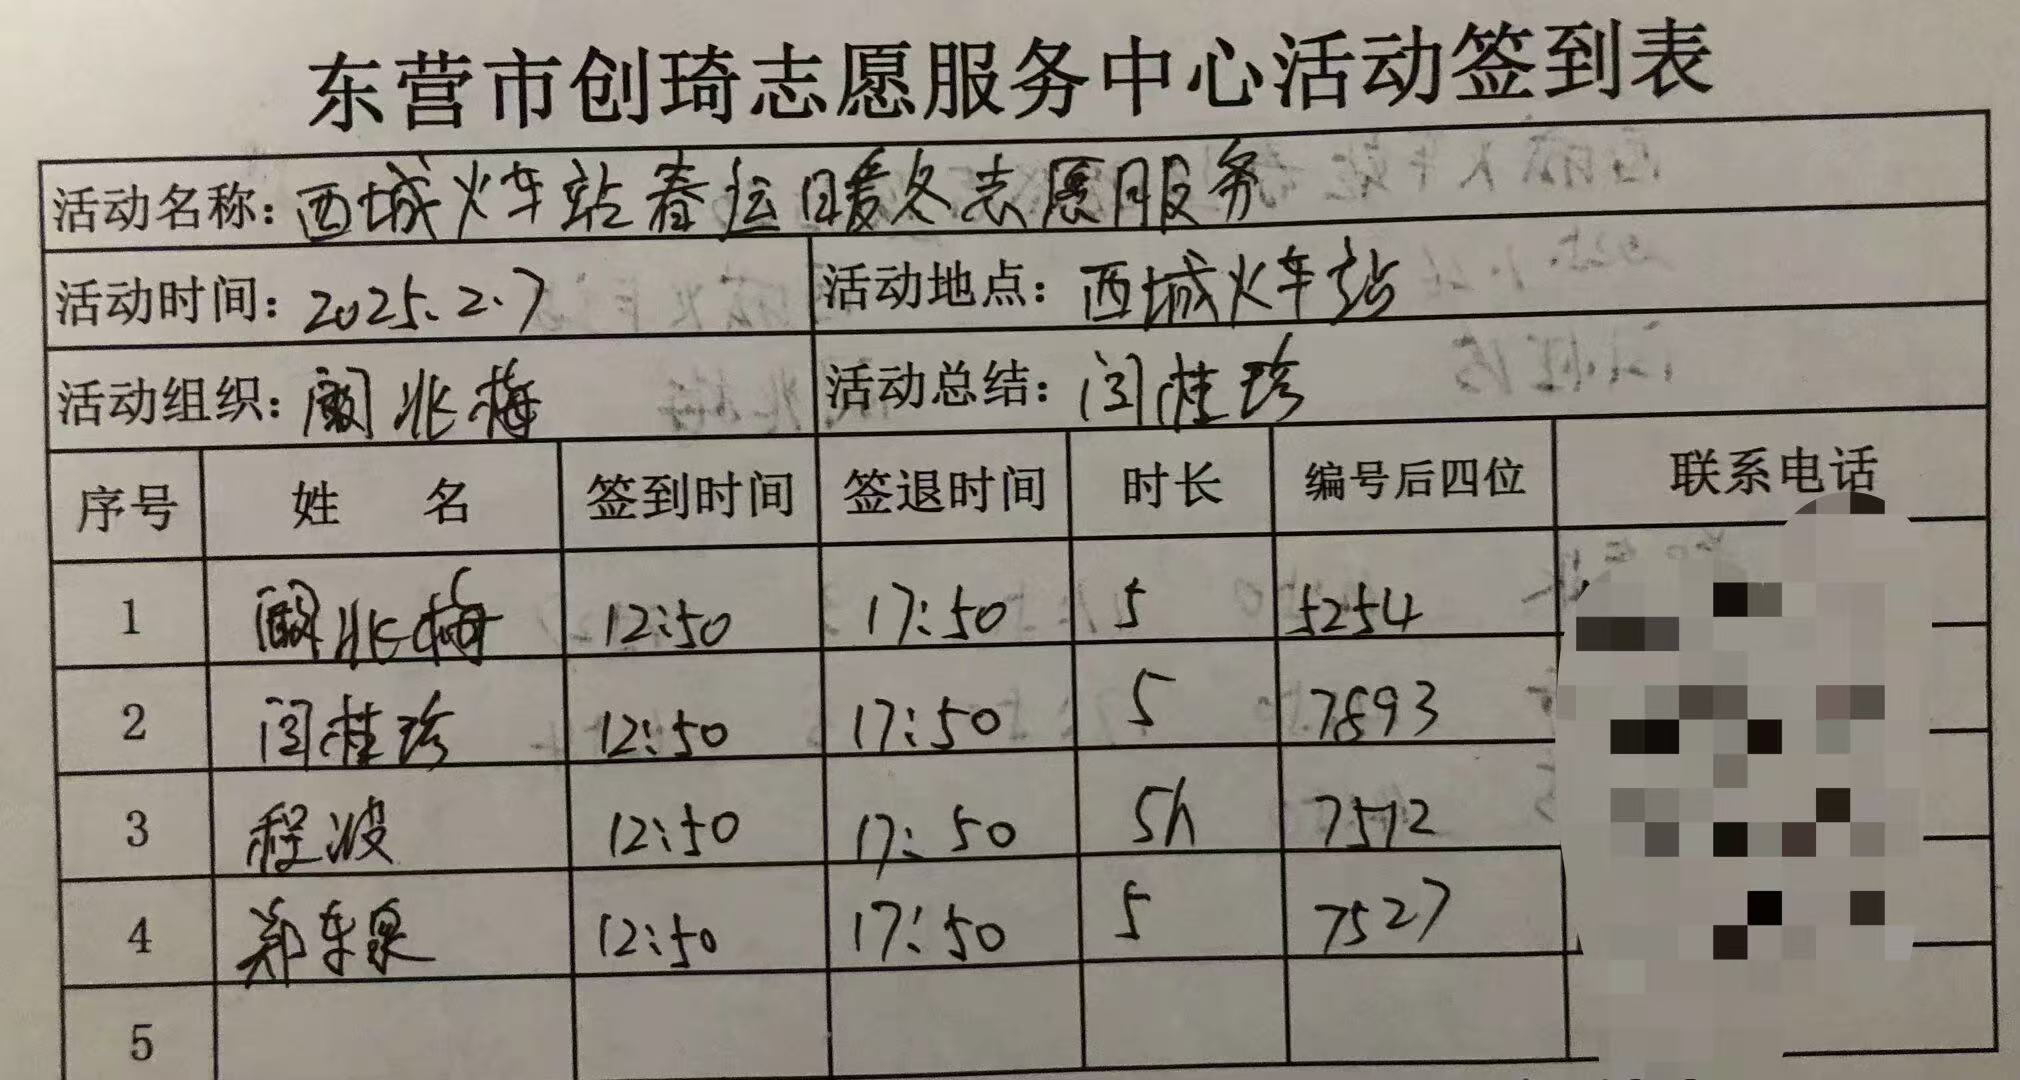 东营市创琦志愿服务中心活动签到表
活动名称：西城火车站春运暖冬志愿服务
活动时间：2025.2.7 活动地点：西城火车站
活动组织：阚兆梅 活动总结：闫桂珍
序号 姓 名 签到时间 签退时间 时长 编号后四位 联系电话
1 阚兆梅 12:50 17:50 5 5254
2 闫桂珍 12:50 17:50 5 7893
3 程波 12:50 17:50 5h 7512
4 郑东泉 12:50 17:50 5 7527
5